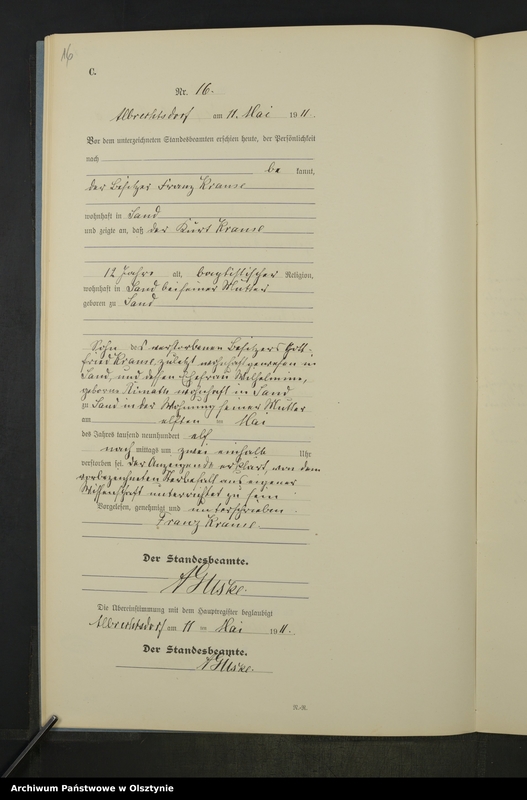 16
C.
Nr. 16.
Albrechtsdorf am 11. Mai 1911.
Vor dem unterzeichneten Standesbeamten erschien heute, der Persönlichkeit
nach
be kannt,
der Besitzer Franz
wohnhaft in Sand
und zeigte an, daß der Kurt
12 Jahre alt, baptistischer Religion,
wohnhaft in Sand bei seiner Mutter
geboren zu Sand
Sohn des verstorbenen Besitzers Gott-
fried zuletzt wohnhaft gewesen in
Sand, und dessen Ehefrau Wilhelmine,
geborne wohnhaft in Sand
zu Sand in der Wohnung seiner Mutter
am elften Mai
des Jahres tausend neunhundert elf
nach mittags um zwei einhalb Uhr
verstorben sei. Der Anzeigende erklärt, von dem
vorbezeichneten Sterbefall aus eigener
Wissenschaft unterrichtet zu sein.
Vorgelesen, genehmigt und unterschrieben.
Franz
Der Standesbeamte.
Die Übereinstimmung mit dem Hauptregister beglaubigt
Albrechtsdorf am 11 ten Mai 1911.
Der Standesbeamte.
Archiwum Państwowe w Olsztynie